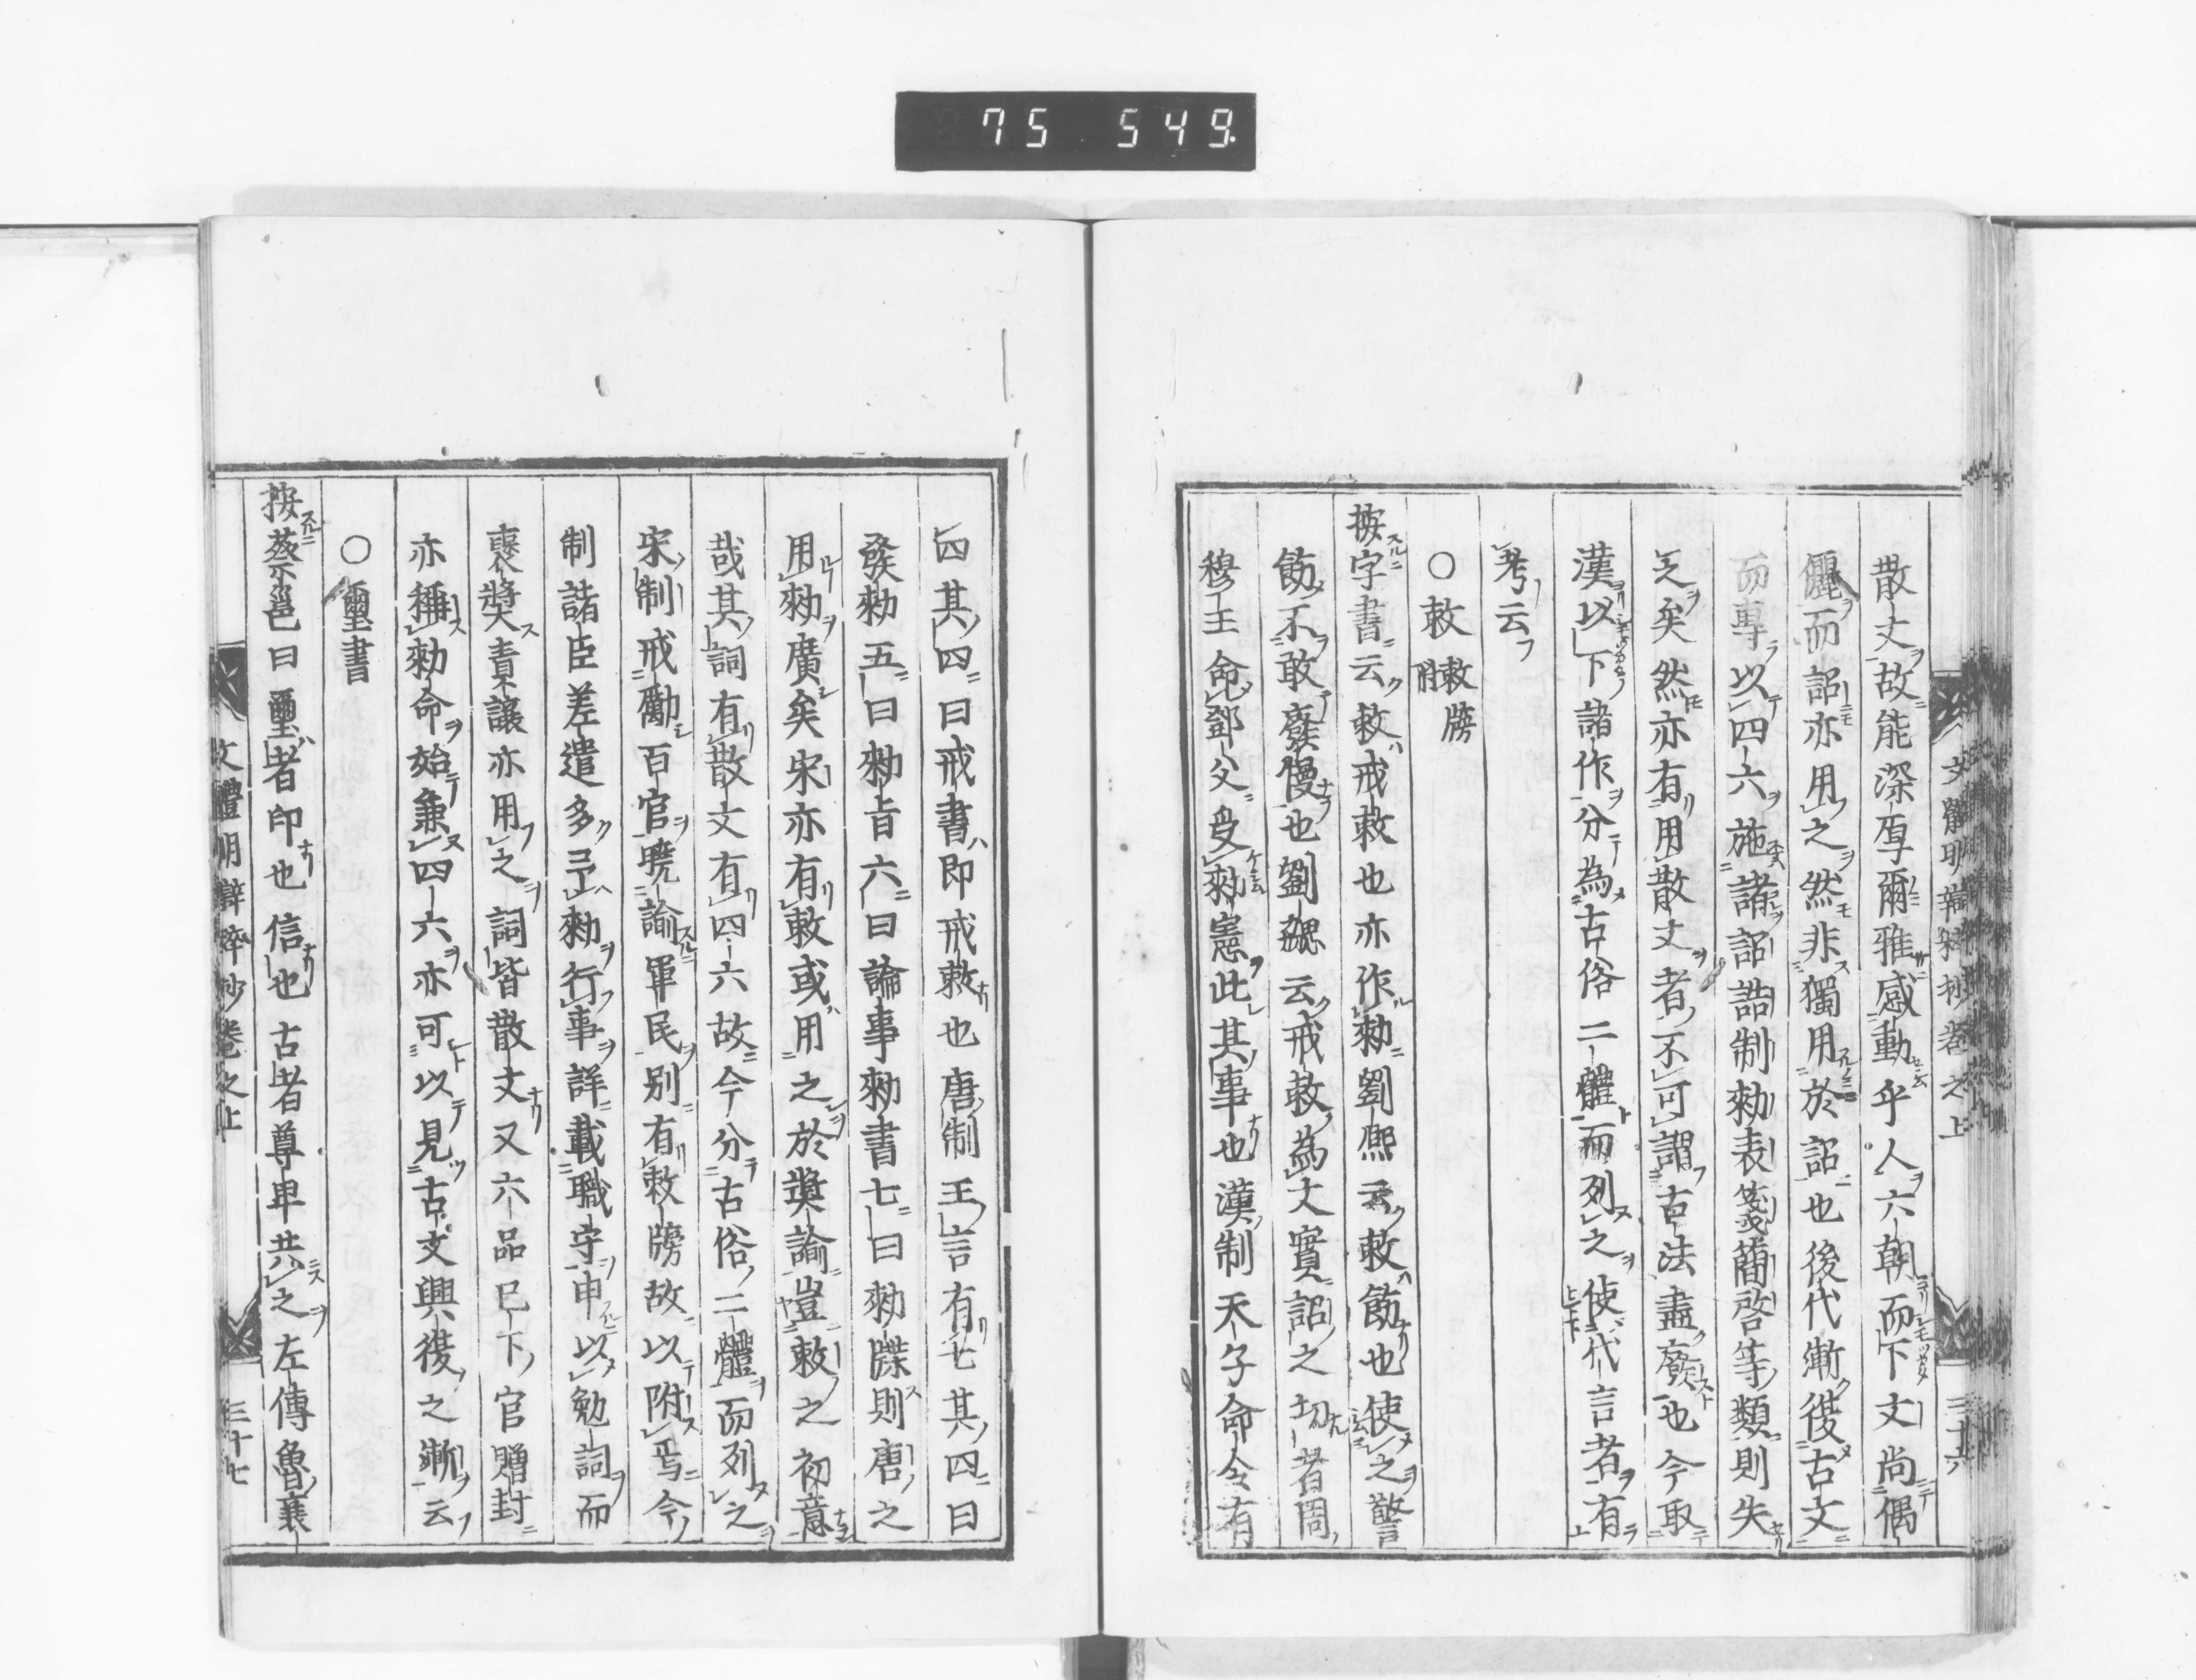 75 549
散文故能深厚爾雅感動乎人六朝而下文尚偶
儷而詔亦用之然非獨用於詔也後代漸復古文
而專以四六施諸詔誥制勑表箋簡啓等類則失
之矣然亦有用散文者不可謂古法盡廢也今取
漢以下諸作分為古俗二體而列之使代言者有
考云
○敕 敕牓附
按字書云敕戒敕也亦作勑劉熙云敕飭也使之警
飭不敢廢慢也劉勰云戒敕為文實詔之切者周
穆王命鄧父受勑憲此其事也漢制天子命令有
文體明辯粹抄卷之上 三十六
四其四曰戒書即戒敕也唐制王言有七其四曰
發勑五曰勑旨六曰論事勑書七曰勑牒則唐之
用勑廣矣宋亦有敕或用之於奬諭豈敕之初意
哉其詞有散文有四六故今分古俗二體而列之
宋制戒勵百官曉諭軍民别有敕牓故以附焉今
制諸臣差遣多予勑行事詳載職守申以勉詞而
褒奬責讓亦用之詞皆散文又六品已下官贈封
亦稱勑命始兼四六亦可以見古文興復之漸云
○璽書
按蔡邕曰璽者印也信也古者尊卑共之左傳魯襄
文體明辯粹抄卷之上 三十七